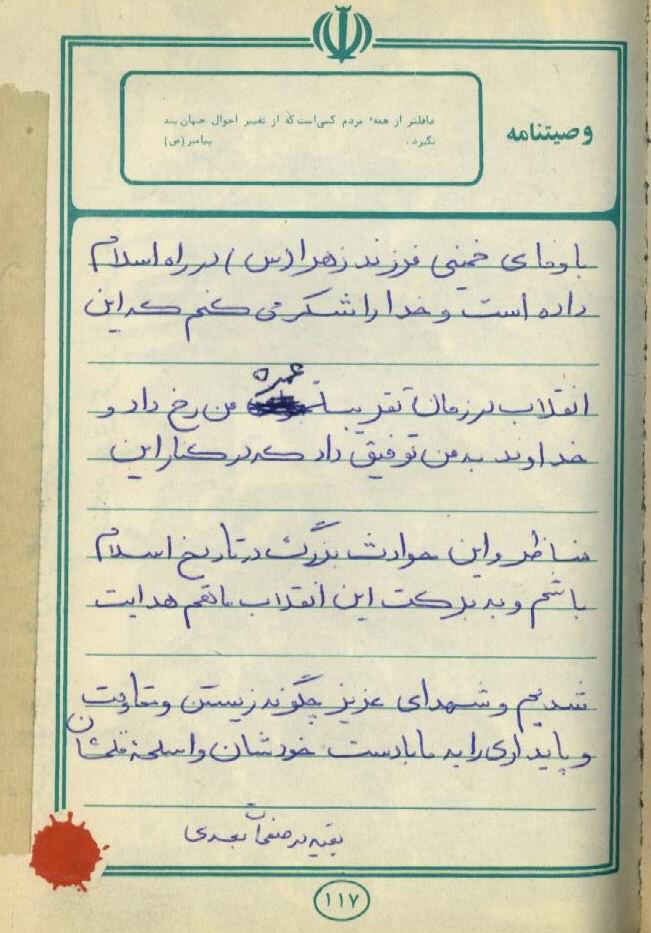 وصیتنامه
غافلتر از همه مردم کسی‌است که از تغییر احوال جهان پند
نگیرد. پیامبر(ص)
باوفای خمینی فرزند زهرا(س) در راه اسلام
داده است و خدا را شکر می کنم که این
انقلاب در زمان تقریباً عمره من رخ داد و
خداوند به من توفیق داد که در کنار این
مناظر و این حوادث بزرگ در تاریخ اسلام
باشم و به برکت این انقلاب ما هم هدایت
شدیم و شهدای عزیز چگونه زیستن و مقاومت
و پایداری را به ما با دست خودشان و اسلحه
بقیه در صفحات بعدی
۱۱۷